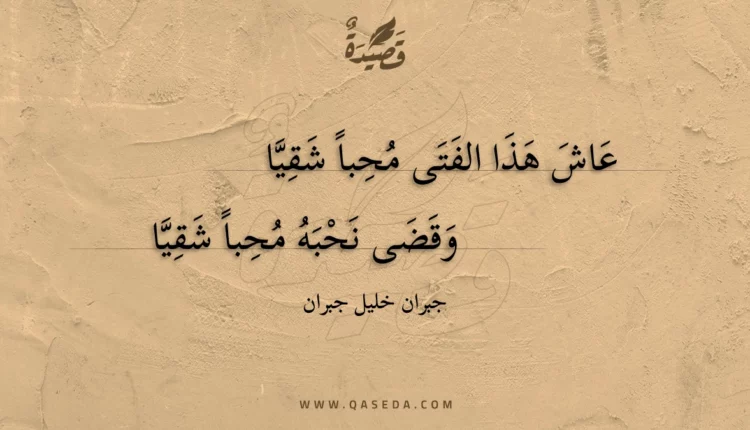 قَصِيدَةٌ
عَاشَ هَذَا الفَتَى مُحِباً شَقِيَّا
وَقَضَى نَحْبَهُ مُحِباً شَقِيَّا
جبران خليل جبران
WWW.QASEDA.COM